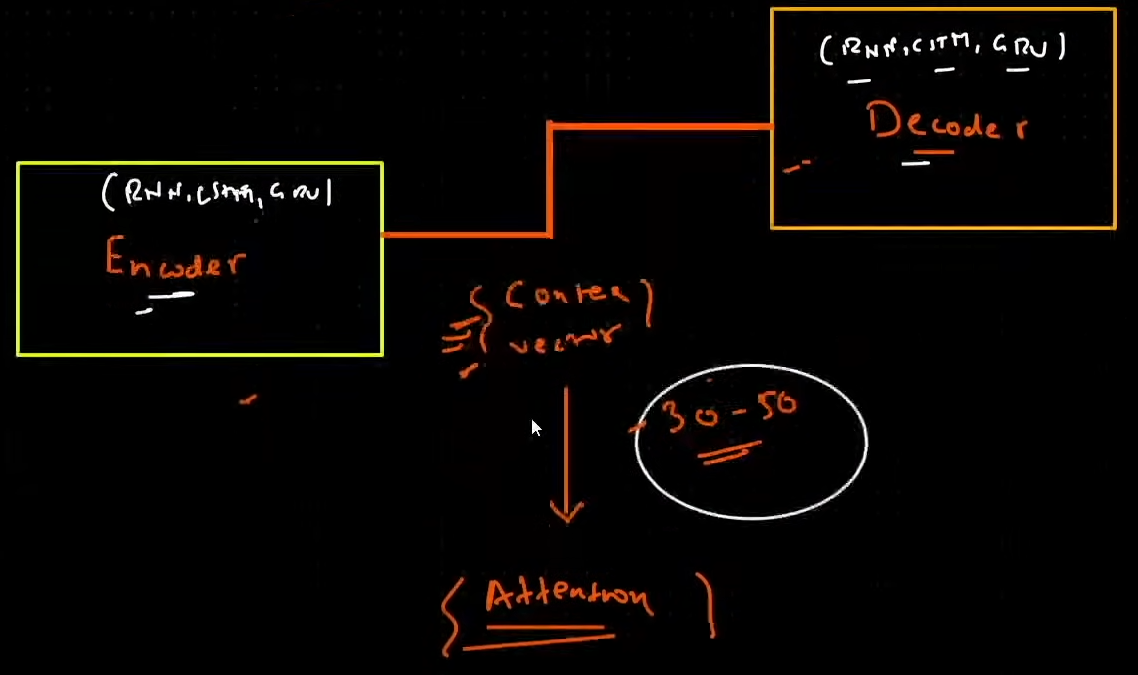 (RNN, LSTM, GRU)
Decoder
(RNN, LSTM, GRU)
Encoder
{ Contex }
{ vector
30-50
{ Attention }